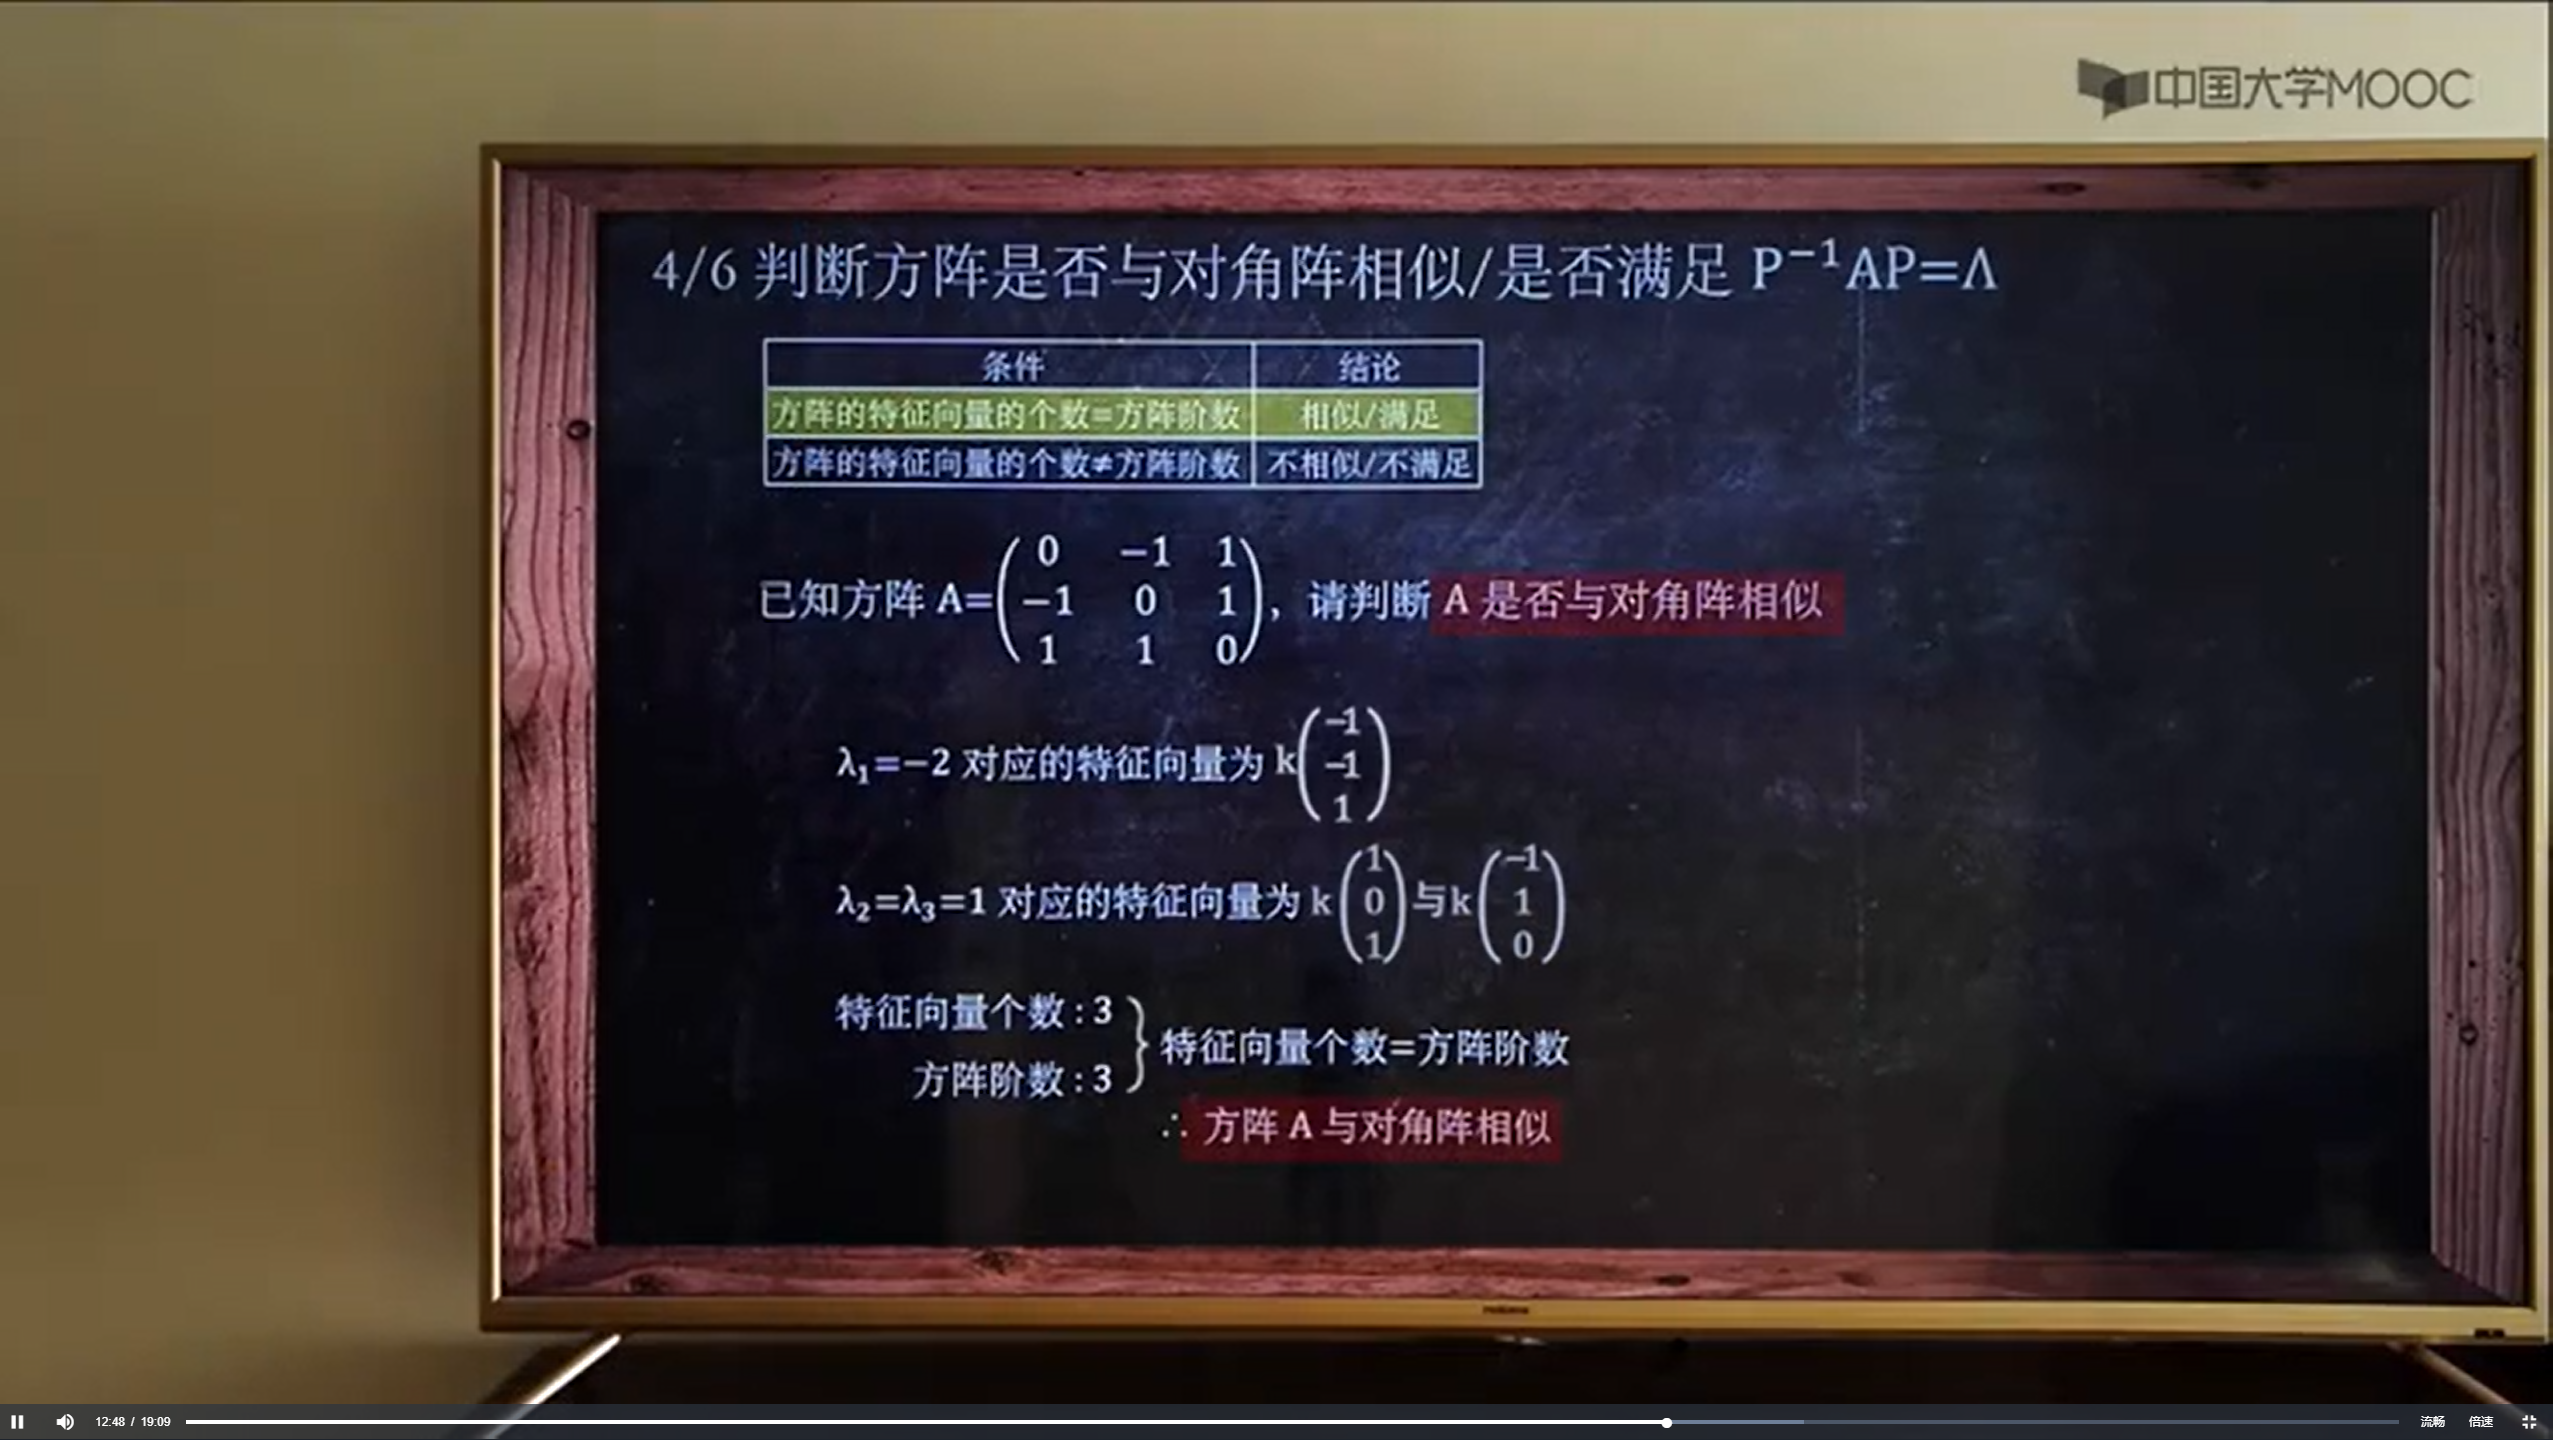 中国大学MOOC
4/6 判断方阵是否与对角阵相似/是否满足 P⁻¹AP=Λ
条件 结论
方阵的特征向量的个数=方阵阶数 相似/满足
方阵的特征向量的个数≠方阵阶数 不相似/不满足
0 −1 1
已知方阵 A= −1 0 1 ，请判断 A 是否与对角阵相似
1 1 0
−1
λ₁=−2 对应的特征向量为 k −1
1
1 −1
λ₂=λ₃=1 对应的特征向量为 k 0 与k 1
1 0
特征向量个数 : 3
特征向量个数=方阵阶数
方阵阶数 : 3
∴ 方阵 A 与对角阵相似
12:48 / 19:09 流畅 倍速